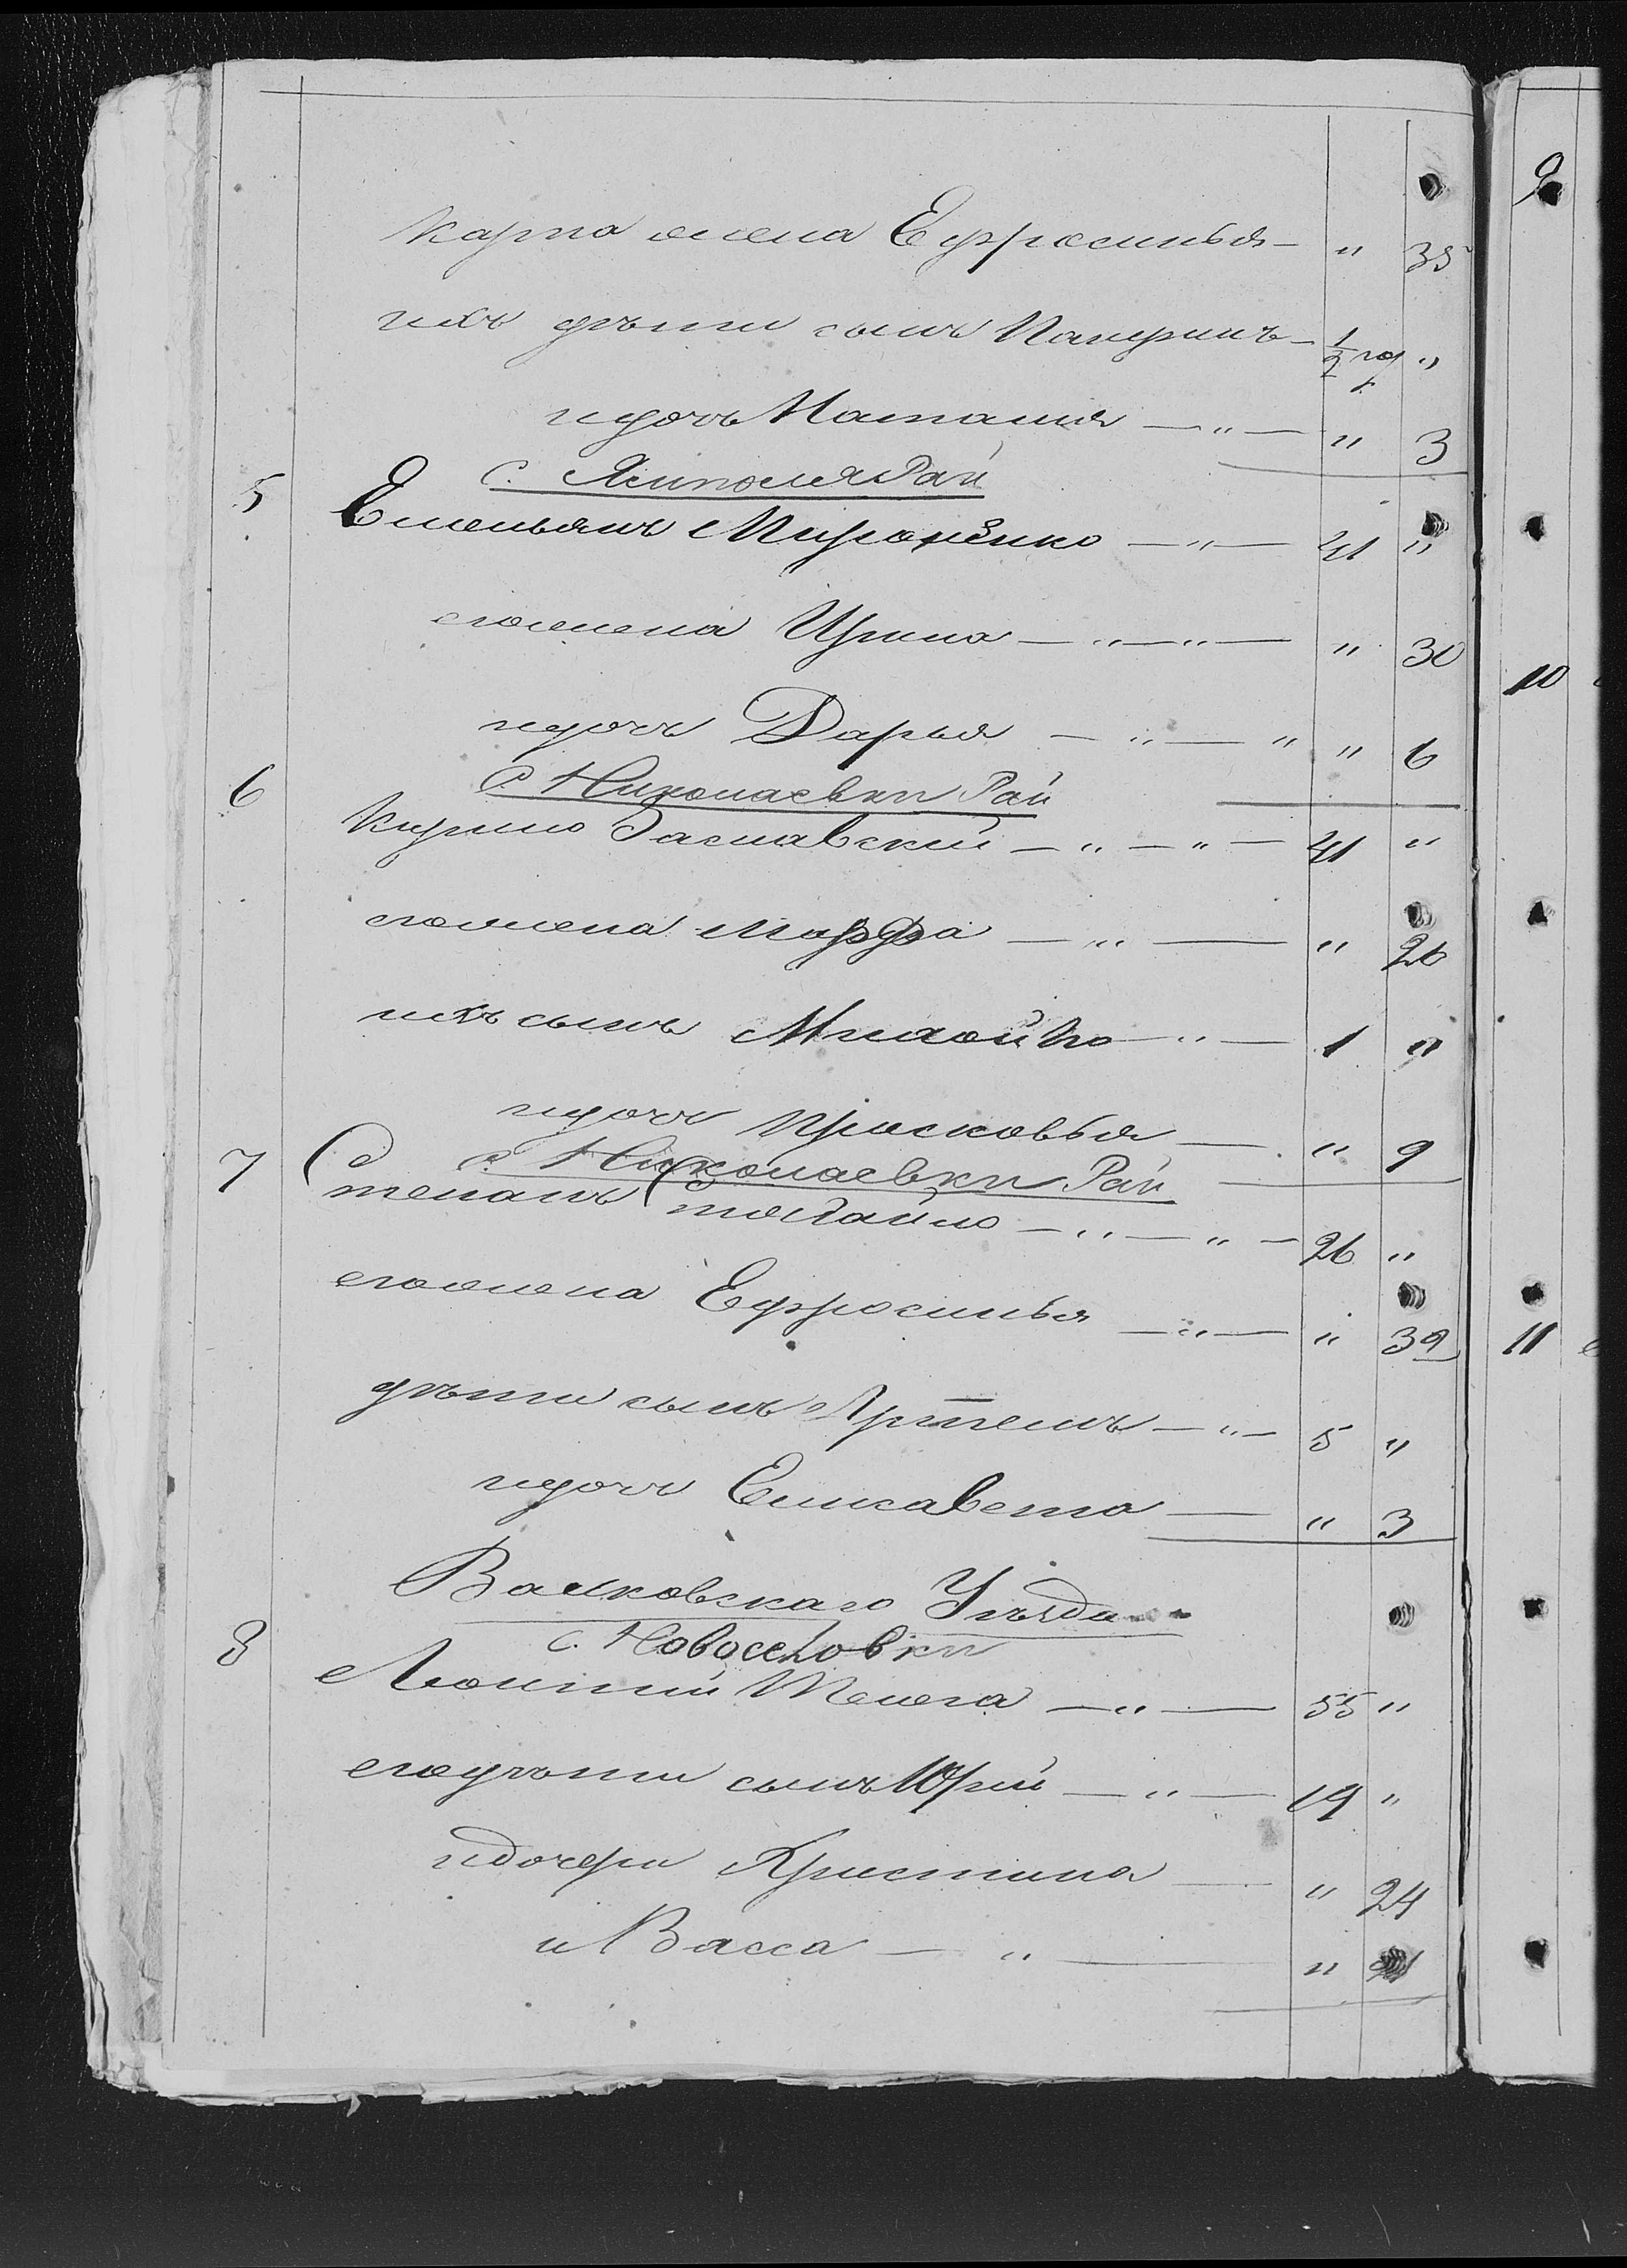 Карпа жена Ефросинья — " 35
ихъ дѣти сынъ — 1/2 год "
и дочь Наталия — " — " 3
5 с. Рай
Емельянъ Мироненко — " — 41 "
его жена Ирина — " — " — " 30
и дочь Дарья — " — " " 6
6 с. Николаевки Рай
Кирило Заславский — " — " — 41 "
его жена Марфа — " — " 26
ихъ сынъ Михайло — " — 1 "
и дочь Прасковья — " 9
7 с. Николаевки Рай
Степанъ — " — " — 26 "
его жена Ефросинья — " — " 32
дѣти сынъ Артемъ — " — 5 "
и дочь Елисавета — " 3
Валковскаго Уѣзда
8 с. Новоселовки
Леонтий Телега — " — 55 "
его дѣти сынъ Юрий — " — 19 "
и дочери Христина — " 24
и Васса — " — "
9
10
11